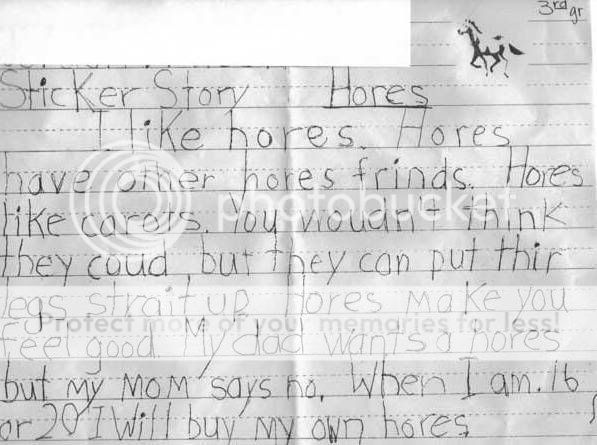 3rd gr
Sticker Story Hores
I like hores. Hores
have other hores frinds. Hores
like carots. You woudn't think
they coud, but they can put thir
legs strait up. Hores make you
feel good. My dad wants a hores
but my mom says no. When I am. 16
or 20 I will buy my own hores
photobucket
Protect more of your memories for less!